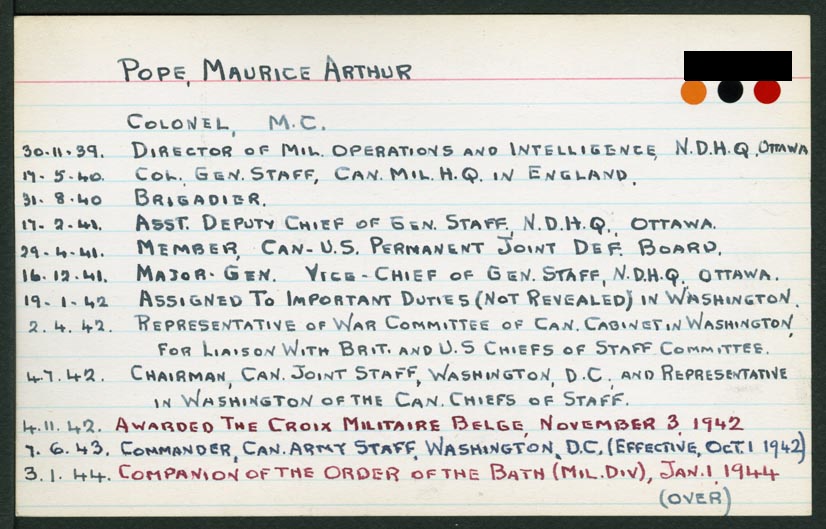 POPE, MAURICE ARTHUR
COLONEL, M.C.
30·11·39. DIRECTOR OF MIL. OPERATIONS AND INTELLIGENCE, N.D.H.Q., OTTAWA
17·5·40. COL. GEN. STAFF, CAN. MIL. H.Q. IN ENGLAND.
31·8·40 BRIGADIER.
17·2·41. ASST. DEPUTY CHIEF OF GEN. STAFF, N.D.H.Q., OTTAWA.
29·4·41. MEMBER, CAN-U.S. PERMANENT JOINT DEF. BOARD.
16·12·41. MAJOR-GEN. VICE-CHIEF OF GEN. STAFF, N.D.H.Q. OTTAWA.
19·1·42 ASSIGNED TO IMPORTANT DUTIES (NOT REVEALED) IN WASHINGTON.
2.4.42. REPRESENTATIVE OF WAR COMMITTEE OF CAN. CABINET IN WASHINGTON,
FOR LIAISON WITH BRIT. AND U.S CHIEFS OF STAFF COMMITTEE.
4.7.42. CHAIRMAN, CAN. JOINT STAFF, WASHINGTON, D.C., AND REPRESENTATIVE
IN WASHINGTON OF THE CAN. CHIEFS OF STAFF.
4.11.42. AWARDED THE CROIX MILITAIRE BELGE, NOVEMBER 3, 1942
7.6.43. COMMANDER, CAN. ARMY STAFF, WASHINGTON, D.C. (EFFECTIVE, OCT. 1 1942)
3.1.44. COMPANION OF THE ORDER OF THE BATH (MIL. DIV), JAN. 1, 1944
(OVER)